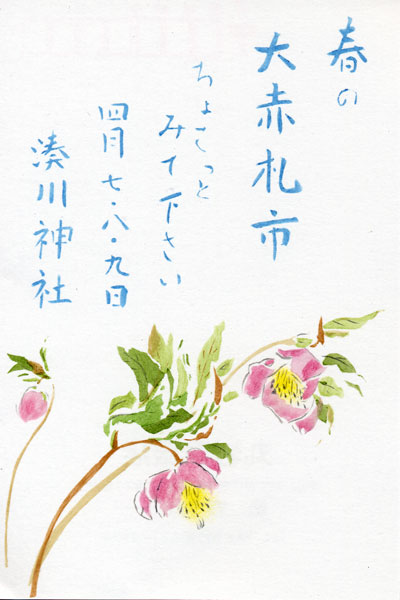 春の
大赤札市
ちょこっと
みて下さい
四月七・八・九日
湊川神社